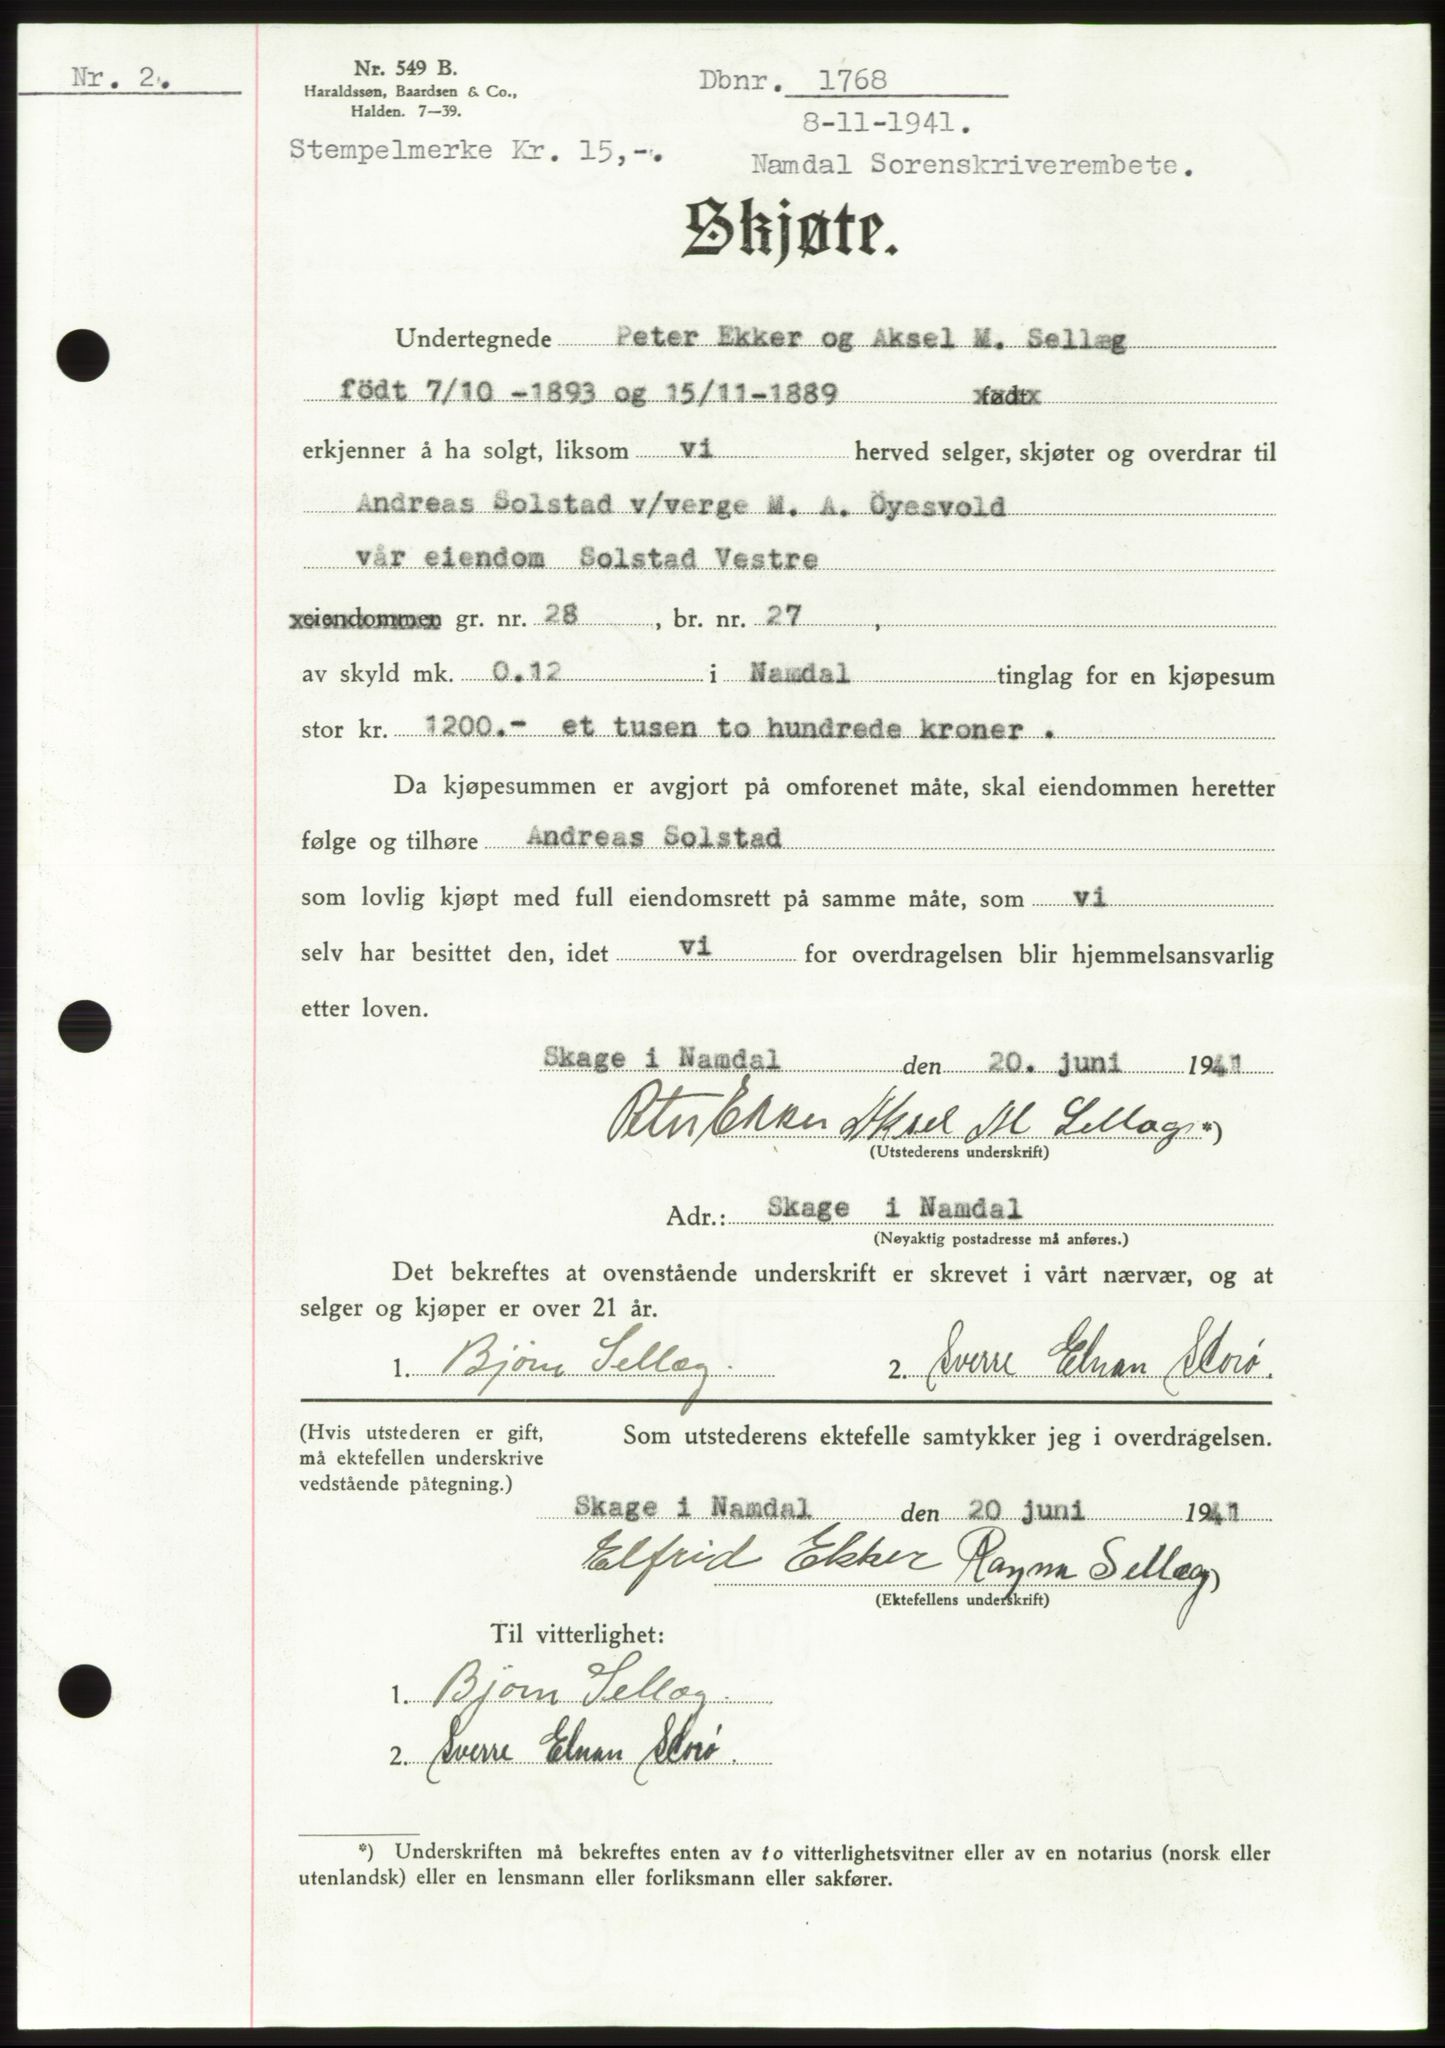 Nr. 2.
Nr. 549 B.
Haraldssøn, Baardsen & Co.,
Halden. 7—39.
Stempelmerke Kr. 15,-.
Dbnr. 1768
8-11-1941.
Namdal Sorenskriverembete.
Skjøte.
Undertegnede Peter Ekker og Aksel M. Sellæg
födt 7/10 -1893 og 15/11-1889 født
erkjenner å ha solgt, liksom vi herved selger, skjøter og overdrar til
Andreas Solstad v/verge M. A. Öyesvold
vår eiendom Solstad Vestre
eiendommen gr. nr. 28, br. nr. 27,
av skyld mk. 0.12 i Namdal tinglag for en kjøpesum
stor kr. 1200.- et tusen to hundrede kroner .
Da kjøpesummen er avgjort på omforenet måte, skal eiendommen heretter
følge og tilhøre Andreas Solstad
som lovlig kjøpt med full eiendomsrett på samme måte, som vi
selv har besittet den, idet vi for overdragelsen blir hjemmelsansvarlig
etter loven.
Skage i Namdal den 20. juni 1941
Peter Ekker Aksel M Sellæg *)
(Utstederens underskrift)
Adr.: Skage i Namdal
(Nøyaktig postadresse må anføres.)
Det bekreftes at ovenstående underskrift er skrevet i vårt nærvær, og at
selger og kjøper er over 21 år.
1. Bjørn Sellæg. 2. Sverre Elnan Storø.
(Hvis utstederen er gift,
må ektefellen underskrive
vedstående påtegning.)
Som utstederens ektefelle samtykker jeg i overdragelsen.
Skage i Namdal den 20 juni 1941
Elfrid Ekker Sellæg)
(Ektefellens underskrift)
Til vitterlighet:
1. Bjørn Sellæg.
2. Sverre Elnan Storø.
*) Underskriften må bekreftes enten av to vitterlighetsvitner eller av en notarius (norsk eller
utenlandsk) eller en lensmann eller forliksmann eller sakfører.